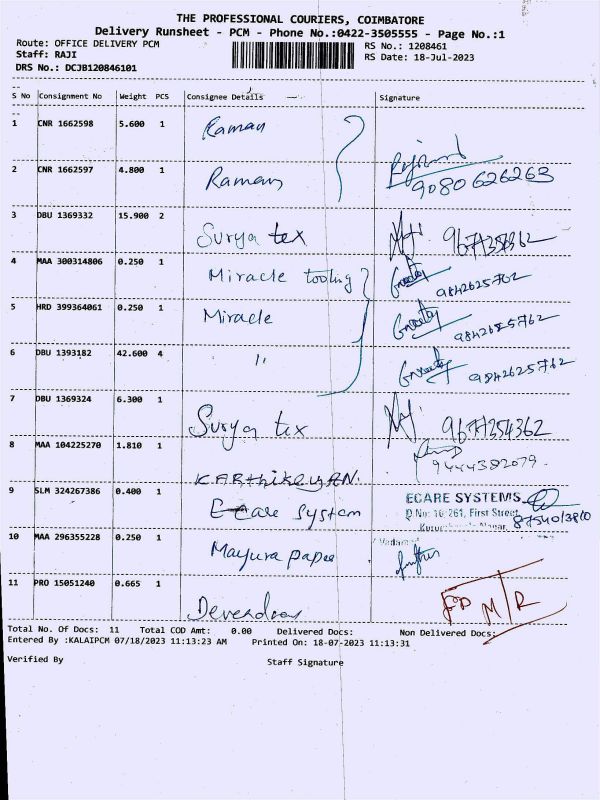 THE PROFESSIONAL COURIERS, COIMBATORE
Delivery Runsheet - PCM - Phone No.:0422-3505555 - Page No.:1
Route: OFFICE DELIVERY PCM RS No.: 1208461
Staff: RAJI RS Date: 18-Jul-2023
DRS No.: DCJB120846101
S No Consignment No Weight PCS Consignee Details Signature
1 CNR 1662598 5.600 1 Raman
2 CNR 1662597 4.800 1 Raman 9080626263
3 DBU 1369332 15.900 2 Surya tex
4 MAA 300314806 0.250 1 Miracle tooling 9842625762
5 HRD 399364061 0.250 1 Miracle 9842625762
6 DBU 1393182 42.600 4 " 9842625762
7 DBU 1369324 6.300 1 Surya tex 9677354362
8 MAA 104225270 1.810 1 KARthikeyAN. 9444382079.
9 SLM 324267386 0.400 1 Ecare System ECARE SYSTEMS
D.No: 10 261, First Street,
Nagar,
10 MAA 296355228 0.250 1 Mayura paper
11 PRO 15051240 0.665 1 Devendran M/R
Total No. Of Docs: 11 Total COD Amt: 0.00 Delivered Docs: Non Delivered Docs:
Entered By :KALAIPCM 07/18/2023 11:13:23 AM Printed On: 18-07-2023 11:13:31
Verified By Staff Signature